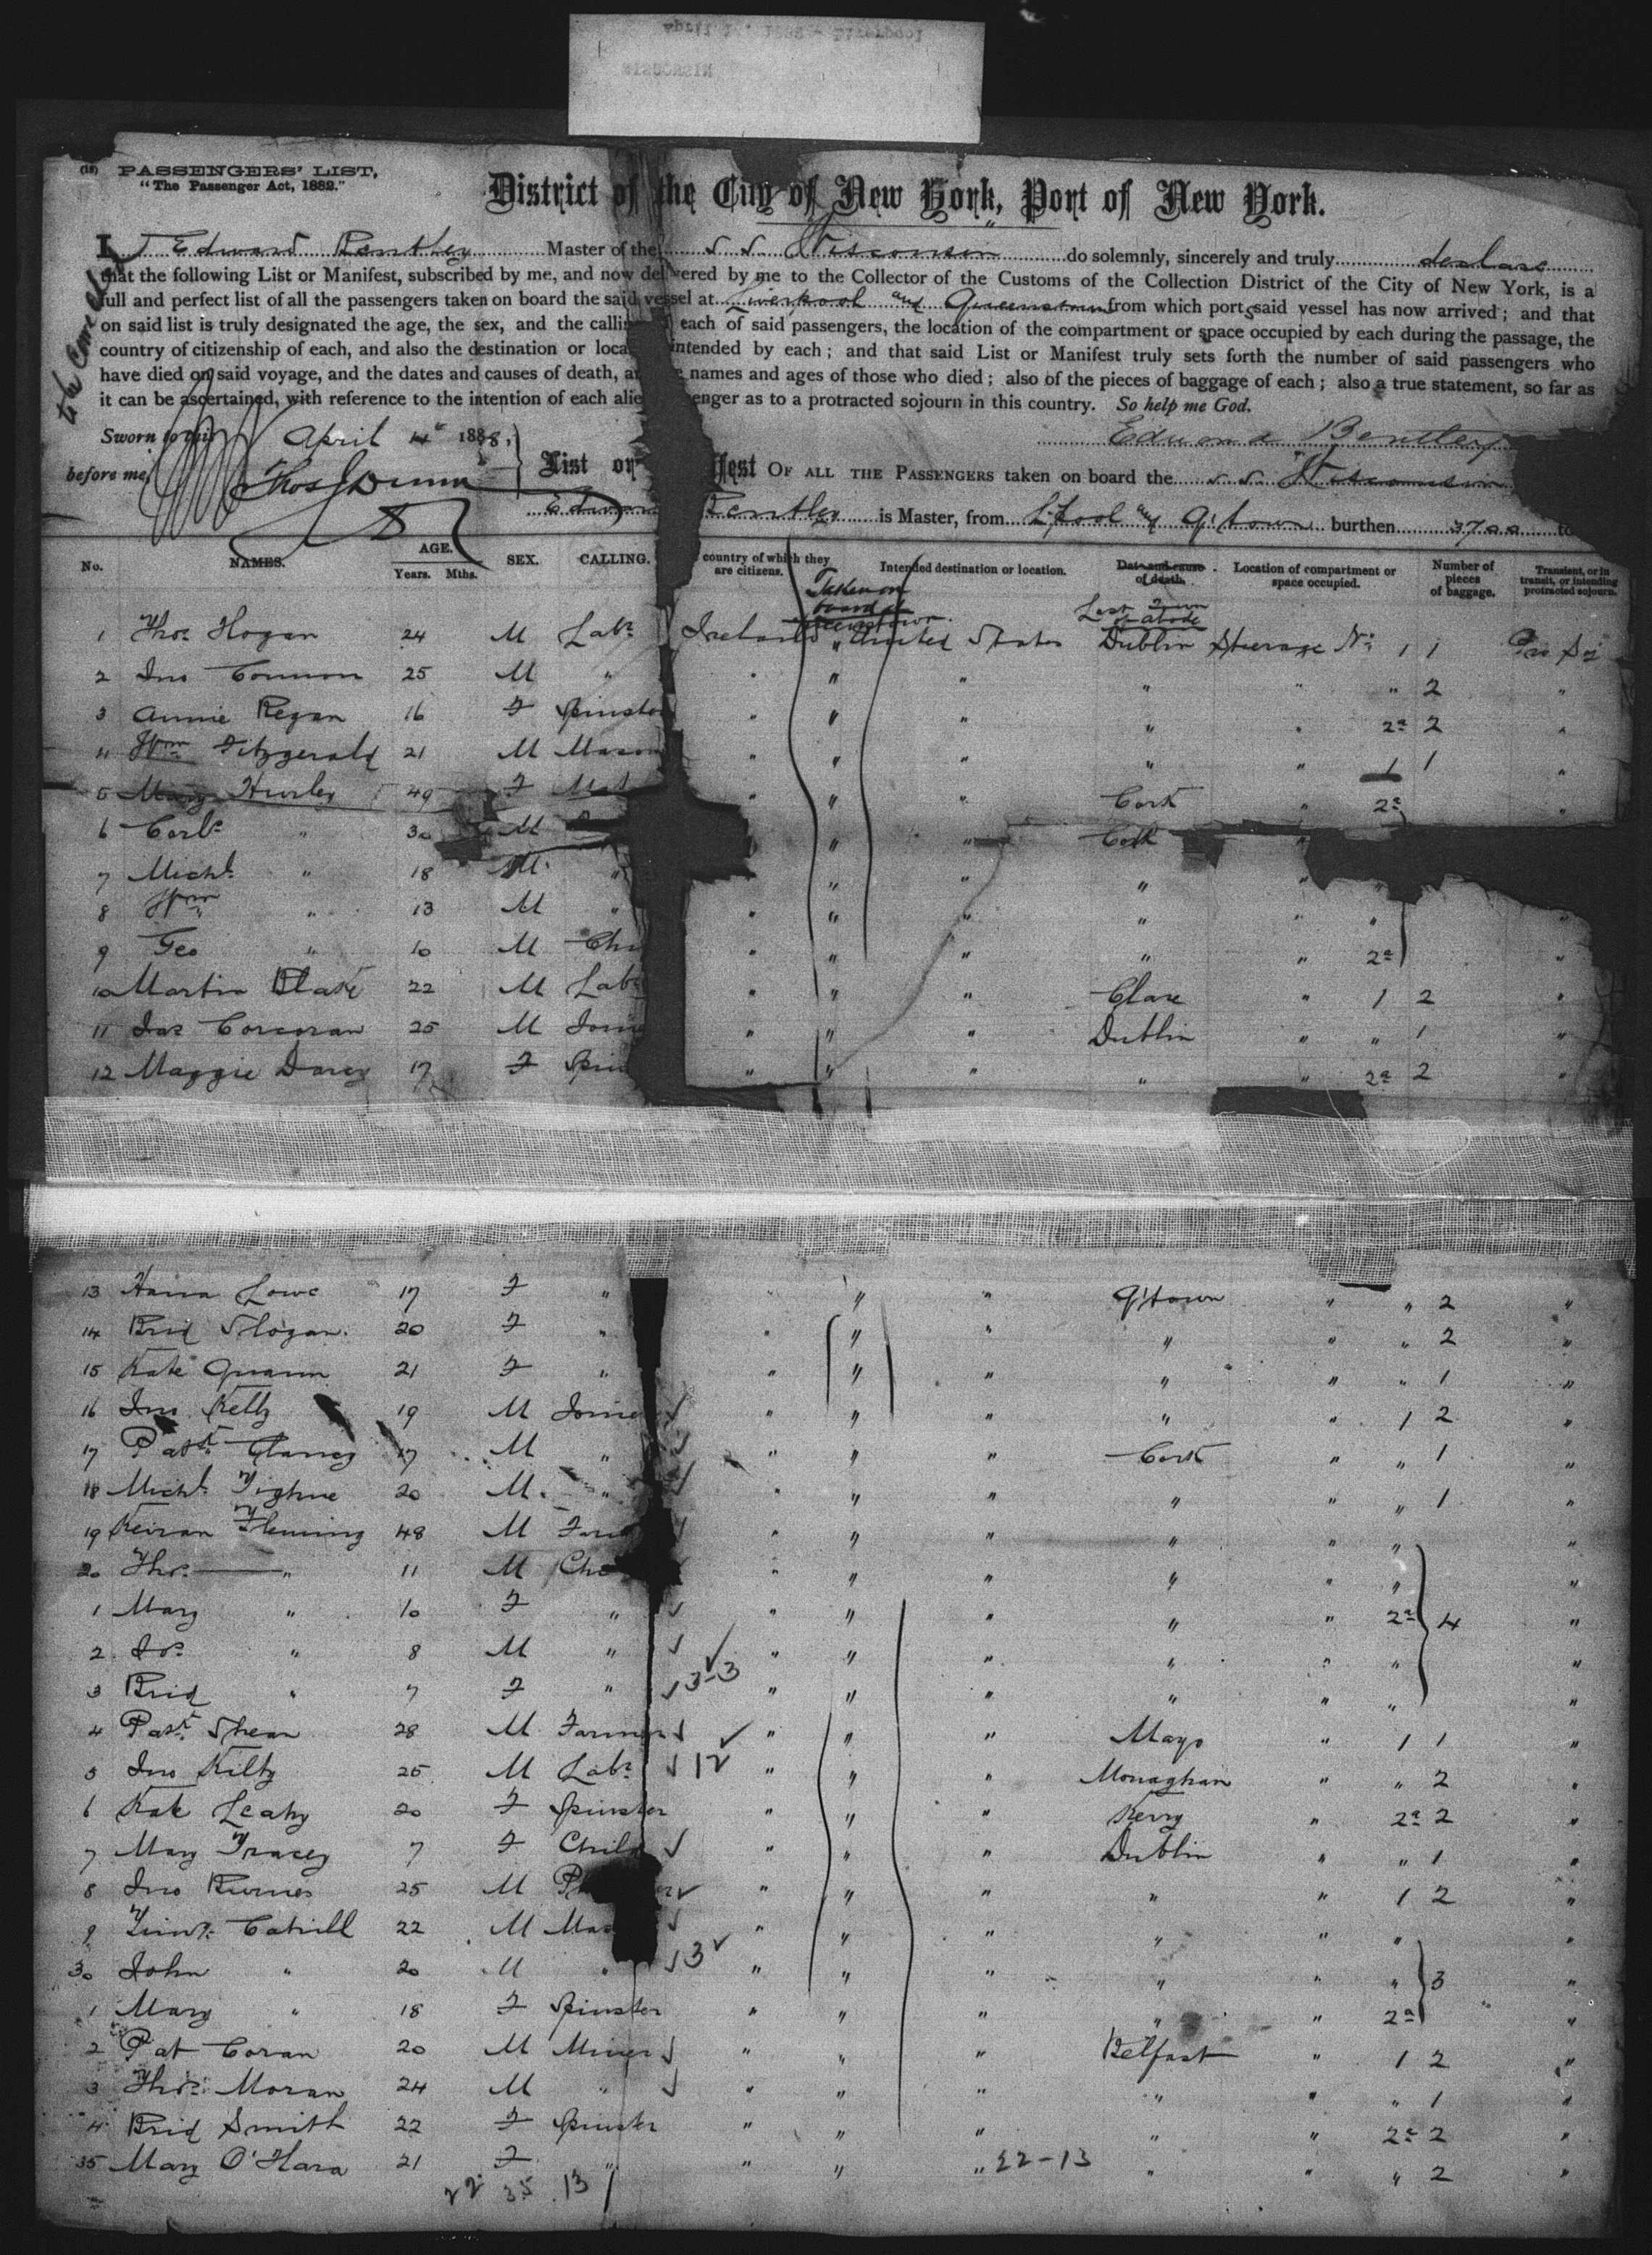 (18) PASSENGERS' LIST,
"The Passenger Act, 1882."
District of the City of New York, Port of New York.
I, Edward Bentley Master of the S.S. Wisconsin do solemnly, sincerely and truly declare
that the following List or Manifest, subscribed by me, and now delivered by me to the Collector of the Customs of the Collection District of the City of New York, is a
full and perfect list of all the passengers taken on board the said vessel at Liverpool and Queenstown from which port said vessel has now arrived; and that
on said list is truly designated the age, the sex, and the calling of each of said passengers, the location of the compartment or space occupied by each during the passage, the
country of citizenship of each, and also the destination or loca intended by each; and that said List or Manifest truly sets forth the number of said passengers who
have died on said voyage, and the dates and causes of death, a names and ages of those who died; also of the pieces of baggage of each; also a true statement, so far as
it can be ascertained, with reference to the intention of each alie enger as to a protracted sojourn in this country. So help me God.
Sworn to this April 4th 1888,
Edward Bentley
before me, Thos J Dunn
List or fest OF ALL THE PASSENGERS taken on board the S.S. Wisconsin
Edward Bentley is Master, from L'pool and Q'town burthen 3700 to
No. NAMES. AGE. Years. Mths. SEX. CALLING. country of which they are citizens. Intended destination or location. Date and cause of death. Location of compartment or space occupied. Number of pieces of baggage. Transient, or in transit, or intending protracted sojourn.
Taken on board at Queenstown
Last Town of abode
1 Thos Hogan 24 M Labr Ireland " United States Dublin Steerage No 1 1 Pro Soj
2 Jno Connon 25 M " " " " " " " 2 "
3 Annie Regan 16 F Spinster " " " " " 2a 2 "
4 Wm Fitzgerald 21 M Mason " " " " " 1 1 "
5 Mary Hurley 49 F Mat " " " Cork " 2a "
6 Corls " 30 M " " Cork "
7 Michl " 18 M " " " " " " "
8 Wm " 13 M " " " " " " " "
9 Geo " 10 M Chi " " " " " 2a "
10 Martin Blake 22 M Labr " " " Clare " 1 2 "
11 Jas Corcoran 25 M Joine " " " Dublin " " 1 "
12 Maggie Darcy 17 F Spin " " " " " 2a 2 "
13 Hanna Lowe 17 F " " " " Q'town " " 2 "
14 Brid Slogan 20 F " " " " " " " 2 "
15 Kate Quann 21 F " " " " " " " 1 "
16 Jno Kelly 19 M Joine " " " " " 1 2 "
17 Patk Clancy 17 M " " " " Cork " " 1 "
18 Michl Tighne 20 M " " " " " " " 1 "
19 Keiran Fleming 48 M Far " " " " " " "
20 Thos " 11 M Chi " " " " " " "
1 Mary " 10 F " " " " " " 2a 4 "
2 Jos " 8 M " " " " " " " "
3 Brid " 7 F " 3-3 " " " " " " "
4 Patk Shean 28 M Farmer " " " Mayo " 1 1 "
5 Jno Kilty 25 M Labr 12 " " " Monaghan " " 2 "
6 Kate Leahy 20 F Spinster " " " Kerry " 2a 2 "
7 Mary Tracey 7 F Child " " " Dublin " " 1 "
8 Jno Burnes 25 M " " " " " 1 2 "
9 Timy Cahill 22 M Mas " " " " " " "
30 John " 20 M " 3 " " " " " " 3 "
1 Mary " 18 F Spinster " " " " " 2a "
2 Pat Coran 20 M Miner " " " Belfast " 1 2 "
3 Thos Moran 24 M " " " " " " " 1 "
4 Brid Smith 22 F Spinster " " " " " 2a 2 "
35 Mary O'Hara 21 F " " " " 22-13 " " " 2 "
22 35 13